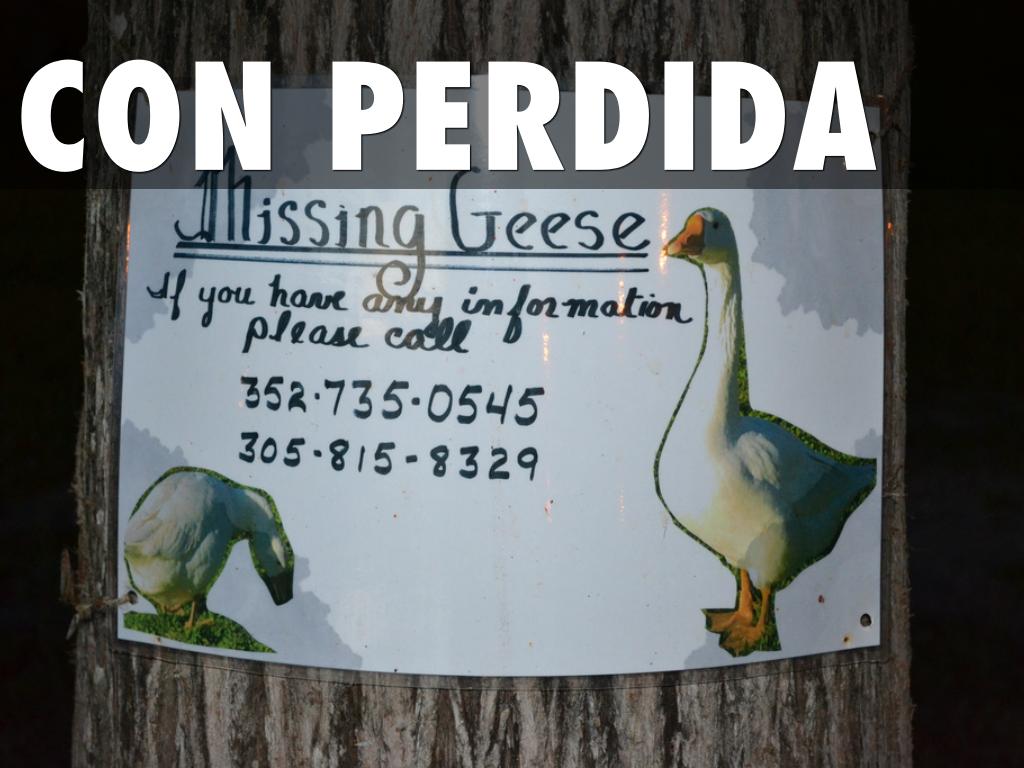 CON PERDIDA
Missing Geese
If you have any information
please call
352·735·0545
305-815-8329